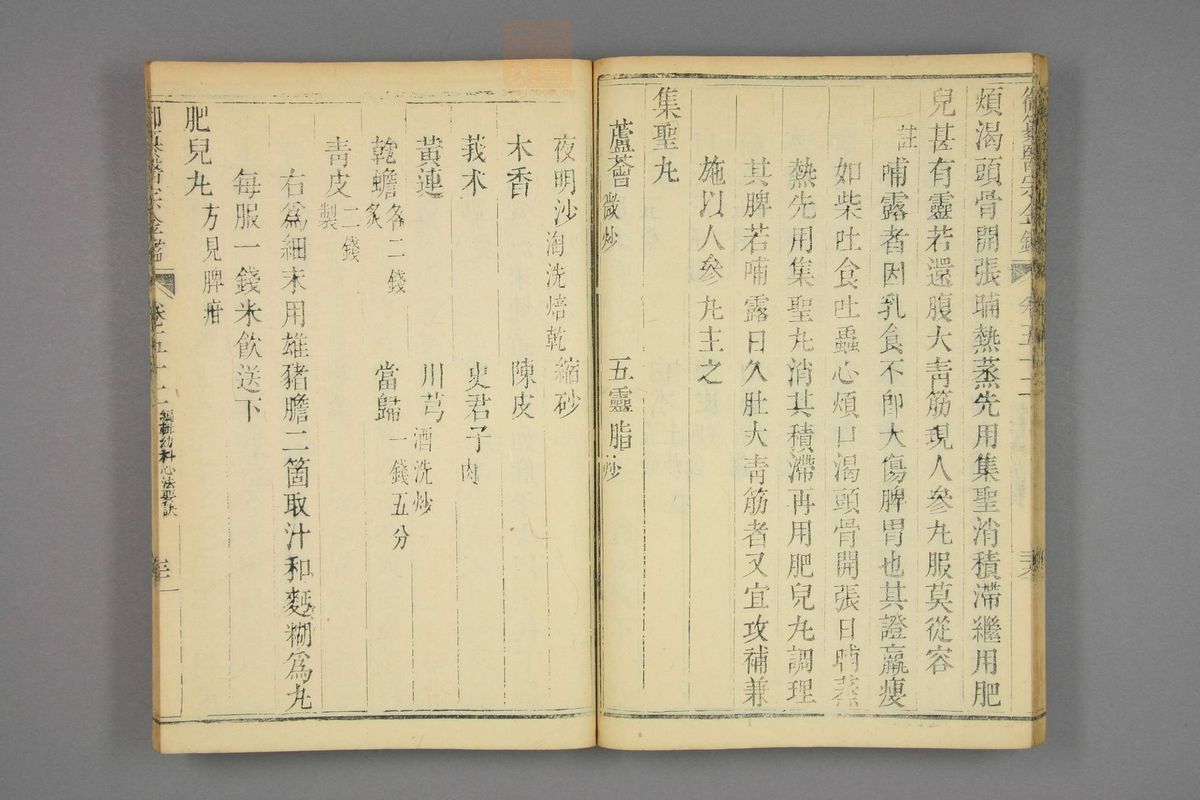 御纂醫宗金鑑 卷五十二
煩渴頭骨開張晡熱蒸先用集聖消積滯繼用肥
兒甚有靈若還腹大青筋現人參丸服莫從容
註 哺露者因乳食不節大傷脾胃也其證羸瘦
如柴吐食吐蟲心煩口渴頭骨開張日晡蒸
熱先用集聖丸消其積滯再用肥兒丸調理
其脾若哺露日久肚大青筋者又宜攻補兼
施以人參丸主之
集聖丸
蘆薈微炒 五靈脂炒
夜明沙淘洗焙乾 縮砂
木香 陳皮
莪朮 史君子肉
黃連 川芎酒洗炒
乾蟾炙各二錢 當歸一錢五分
青皮二錢製
右為細末用雄豬膽二箇取汁和麪糊為丸
每服一錢米飲送下
肥兒丸方見脾疳
御纂醫宗金鑑 卷五十二 編輯幼科心法要訣